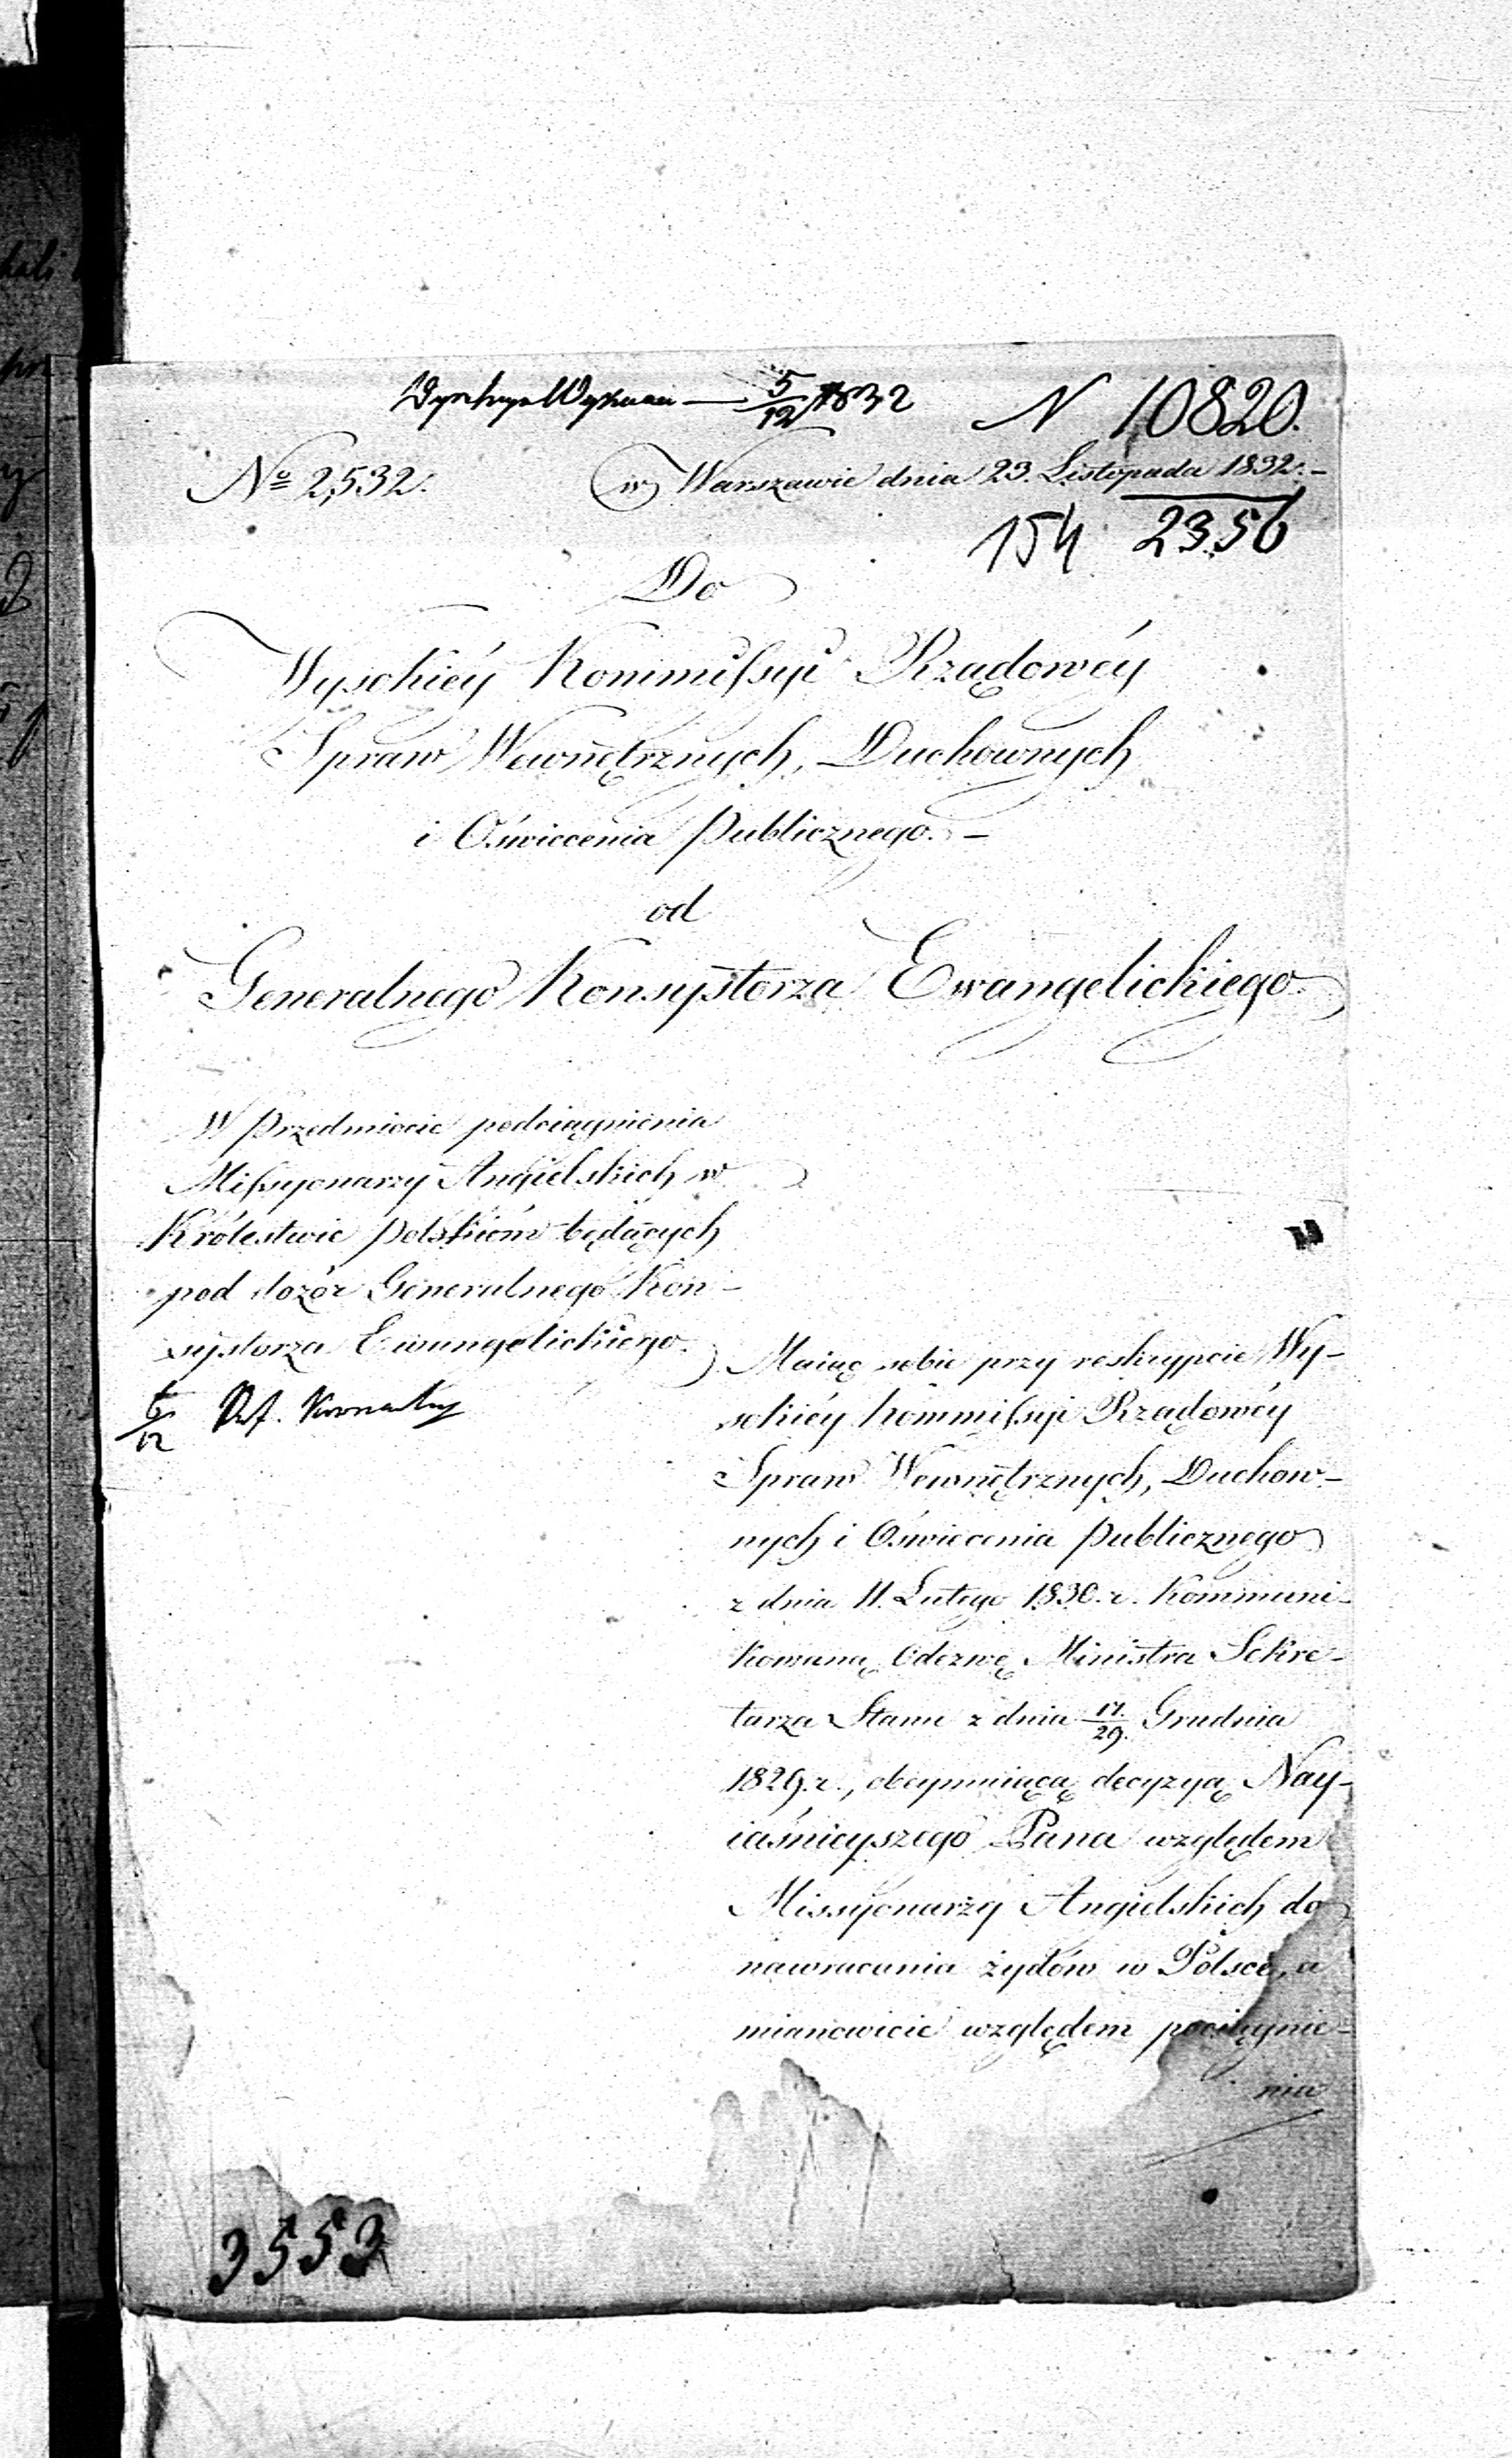 5/12 1832
N 10820.
Nº 2,532.
w Warszawie dnia 23. Listopada 1832. –
154 2356
Do
Wysokiéy Kommissyi Rządowéy
Spraw Wewnętrznych, Duchownych
i Oświecenia Publicznego. –
od
Generalnego Konsystorza Ewangelickiego.
W Przedmiocie podciągnienia
Missyonarzy Angielskich w
Królestwie Polskiém będących
pod dozór Generalnego Kon-
systorza Ewangelickiego.
6/12 Ref.
Maiąc sobie przy reskrypcie Wy-
sokiéy Kommissyi Rządowéy
Spraw Wewnętrznych, Duchow-
nych i Oświecenia Publicznego
z dnia 11. Lutego 1830. r. Kommuni-
kowaną Odezwę Ministra Sekre-
tarza Stanu z dnia 17./29. Grudnia
1829. r., obeymuiącą decyzyą Nay-
iaśnieyszego Pana względem
Missyonarzy Angielskich do
nawracania żydów w Polsce, a
mianowicie względem pociągnie-
nia
3553